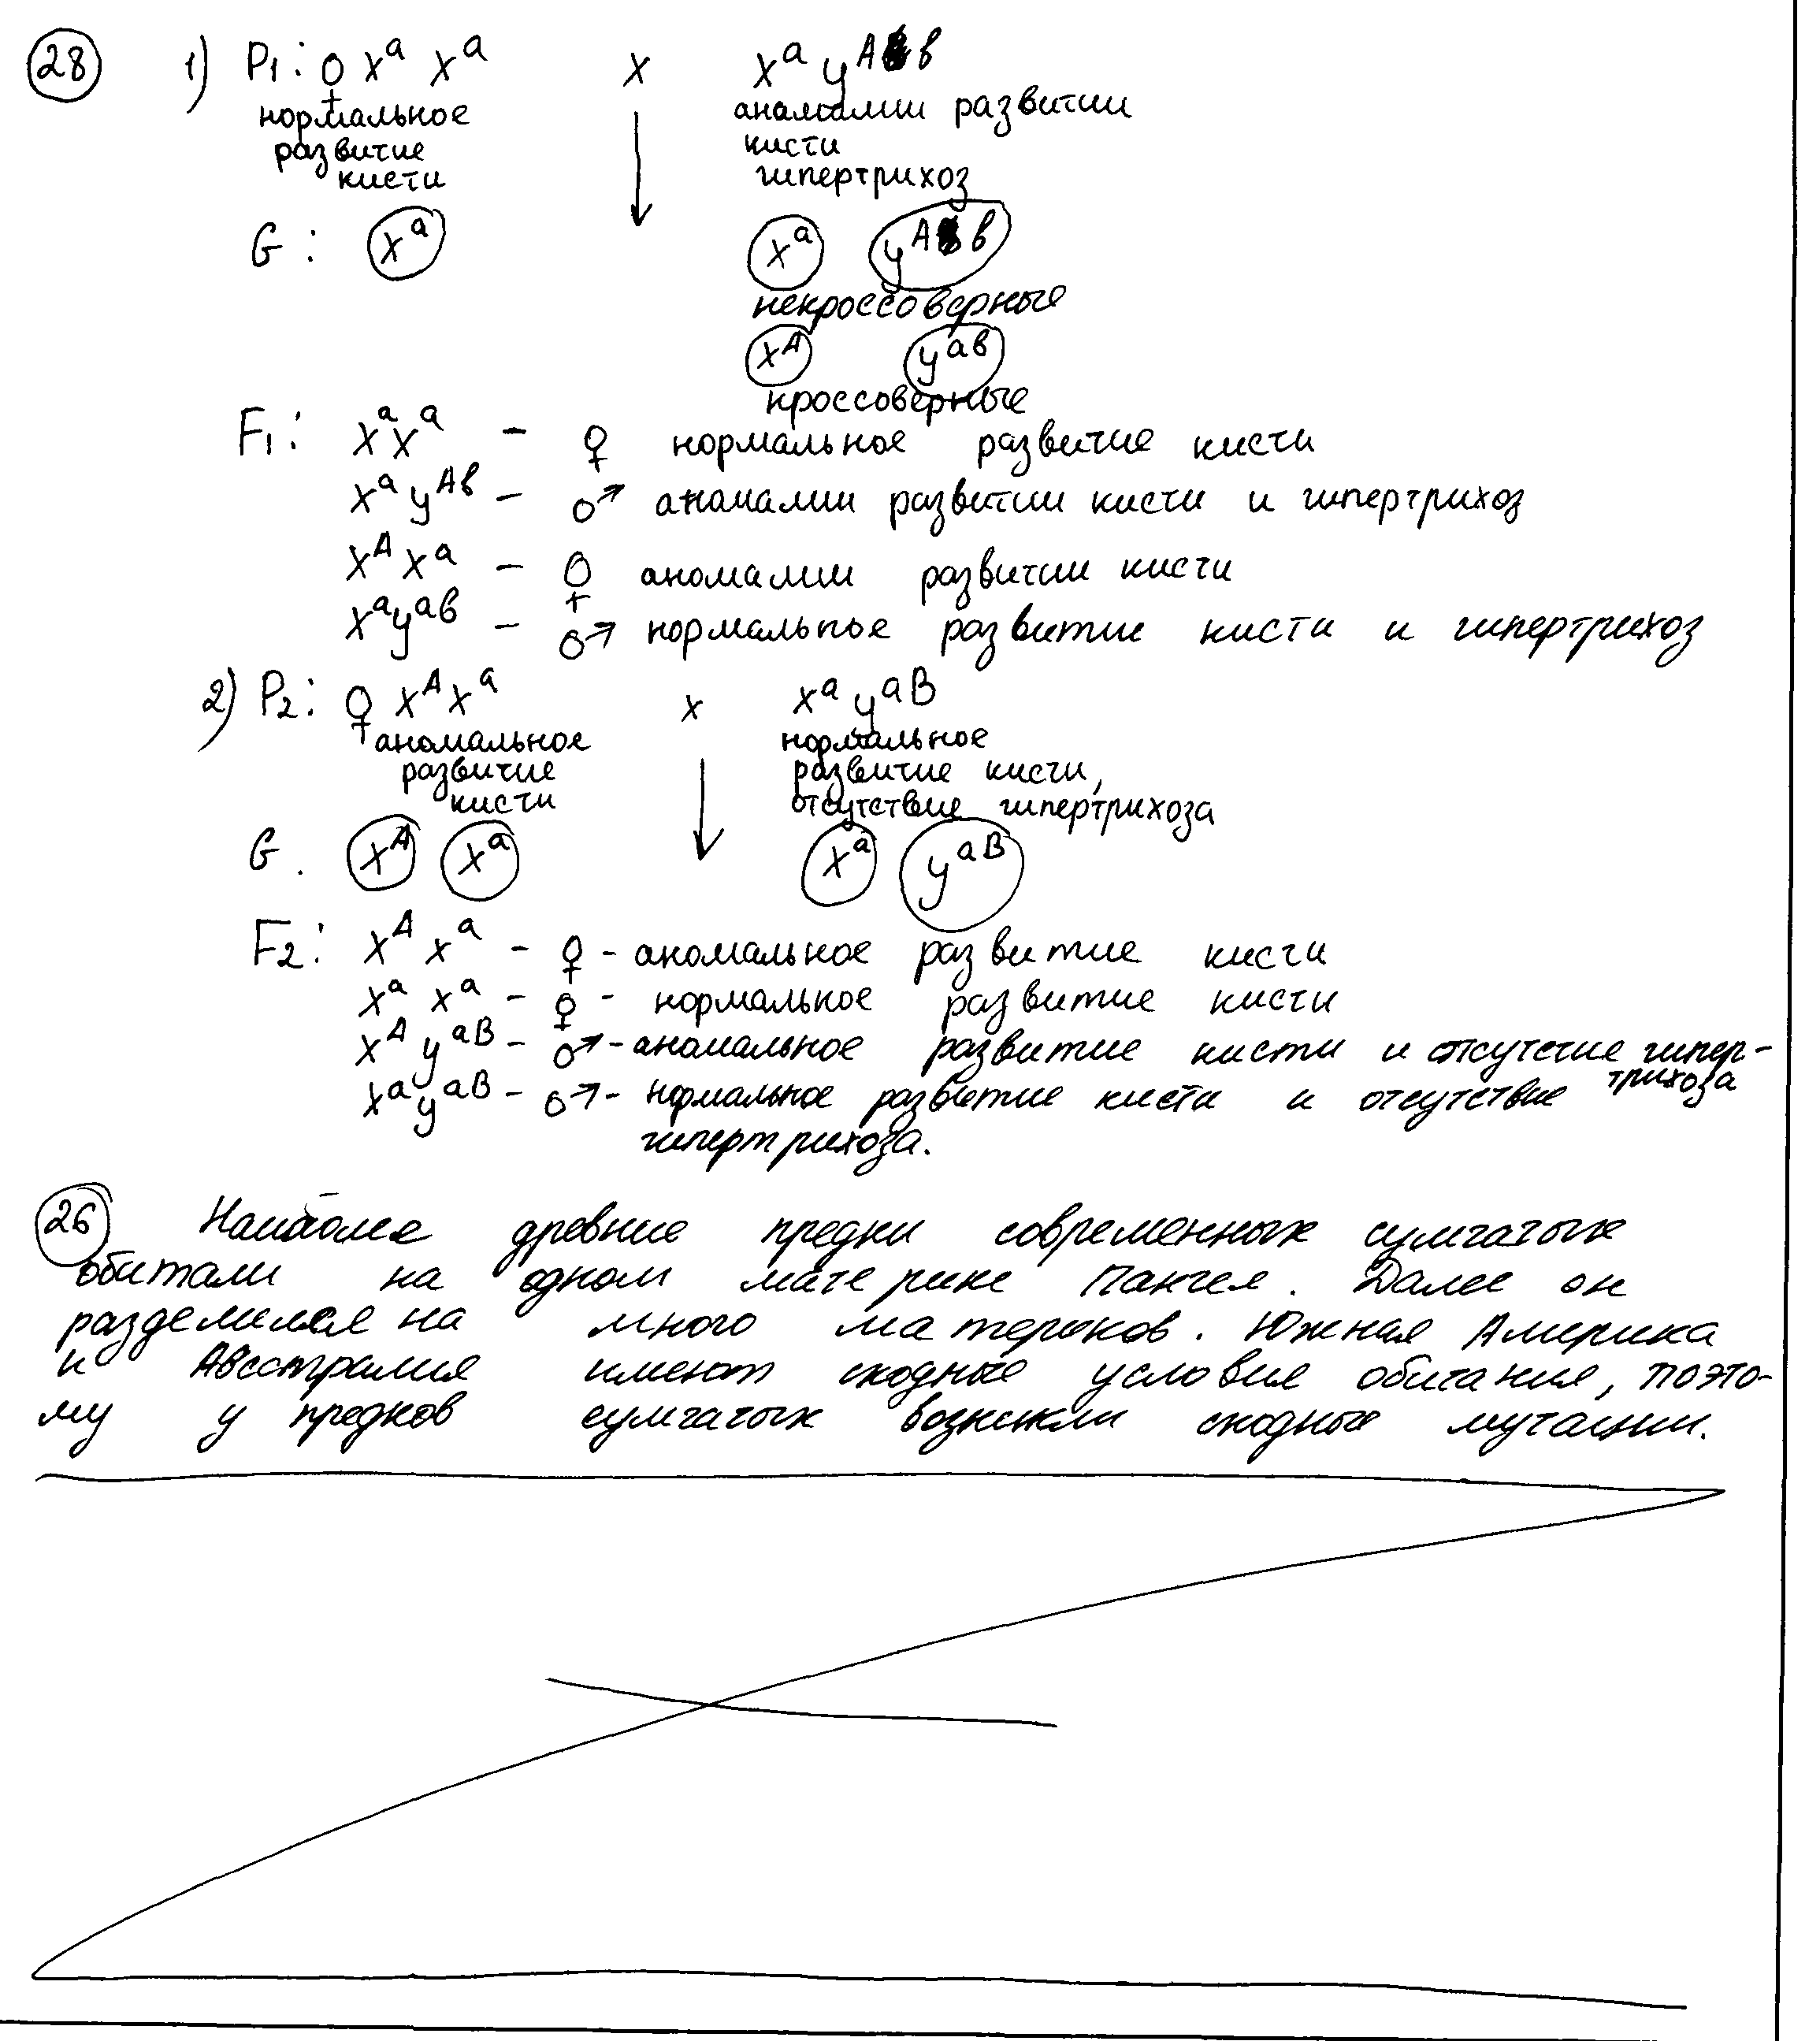 28 1) P1: ♀ Xᵃ Xᵃ x Xᵃ yᴬв
нормальное аномалии развитии
развитие кисти
кисти гипертрихоз
G: Xᵃ Xᵃ yᴬв
некроссоверные
Xᴬ yᵃв
кроссоверные
F1: XᵃXᵃ - ♀ нормальное развитие кисти
Xᵃyᴬв - ♂ аномалии развитии кисти и гипертрихоз
XᴬXᵃ - ♀ аномалии развитии кисти
Xᵃyᵃв - ♂ нормальное развитие кисти и гипертрихоз
2) P2: ♀ XᴬXᵃ x Xᵃ yᵃB
аномальное нормальное
развитие развитие кисти,
кисти отсутствие гипертрихоза
G. Xᴬ Xᵃ Xᵃ yᵃB
F2: Xᴬ Xᵃ - ♀ - аномальное развитие кисти
Xᵃ Xᵃ - ♀ - нормальное развитие кисти
Xᴬ yᵃB - ♂ - аномальное развитие кисти и отсутствие гипер-
трихоза
XᵃyᵃB - ♂ - нормальное развитие кисти и отсутствие
гипертрихоза.
26 Наиболее древние предки современных сумчатых
обитали на одном материке Пангея. Далее он
разделился на много материков. Южная Америка
и Австралия имеют сходные условия обитания, поэто-
му у предков сумчатых возникли сходные мутации.